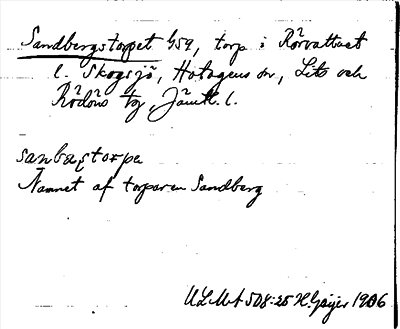 Sandbergstorpet 459, torp i Rörvattnet
l. Skogsjö, Hotagens sn, Lits och
Rödöns tg, Jämtl. l.
sanbæstorpa
Namnet af torparen Sandberg
ULMA 508:25 H Geijer 1906